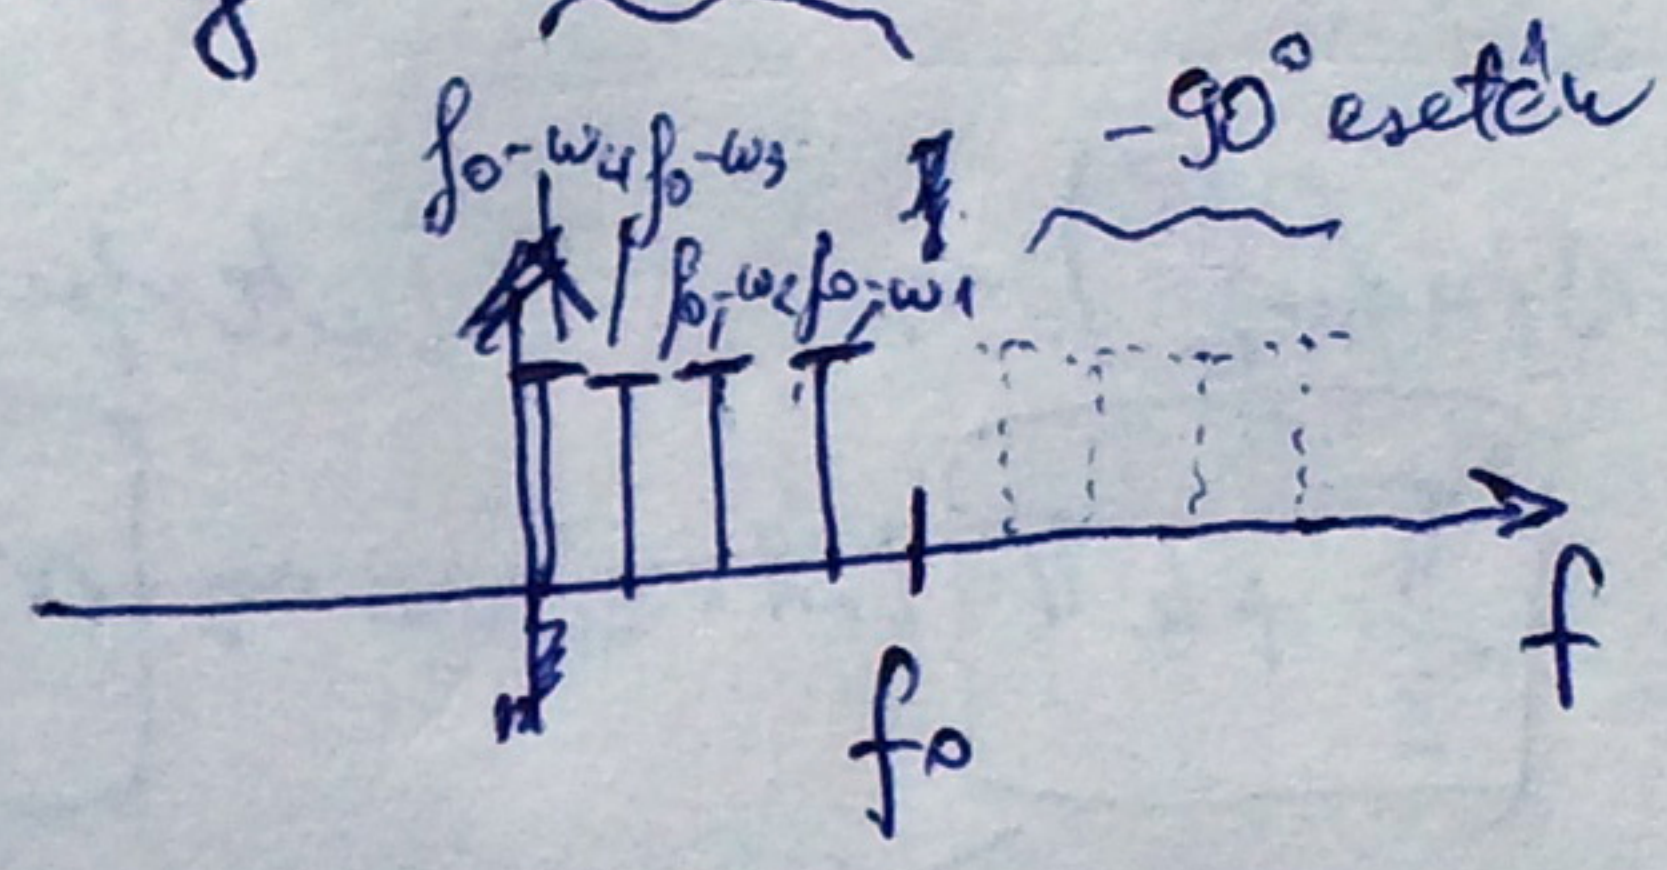 -90° esetén
f0-ω4 f0-ω3
f0-ω2 f0-ω1
f
f0